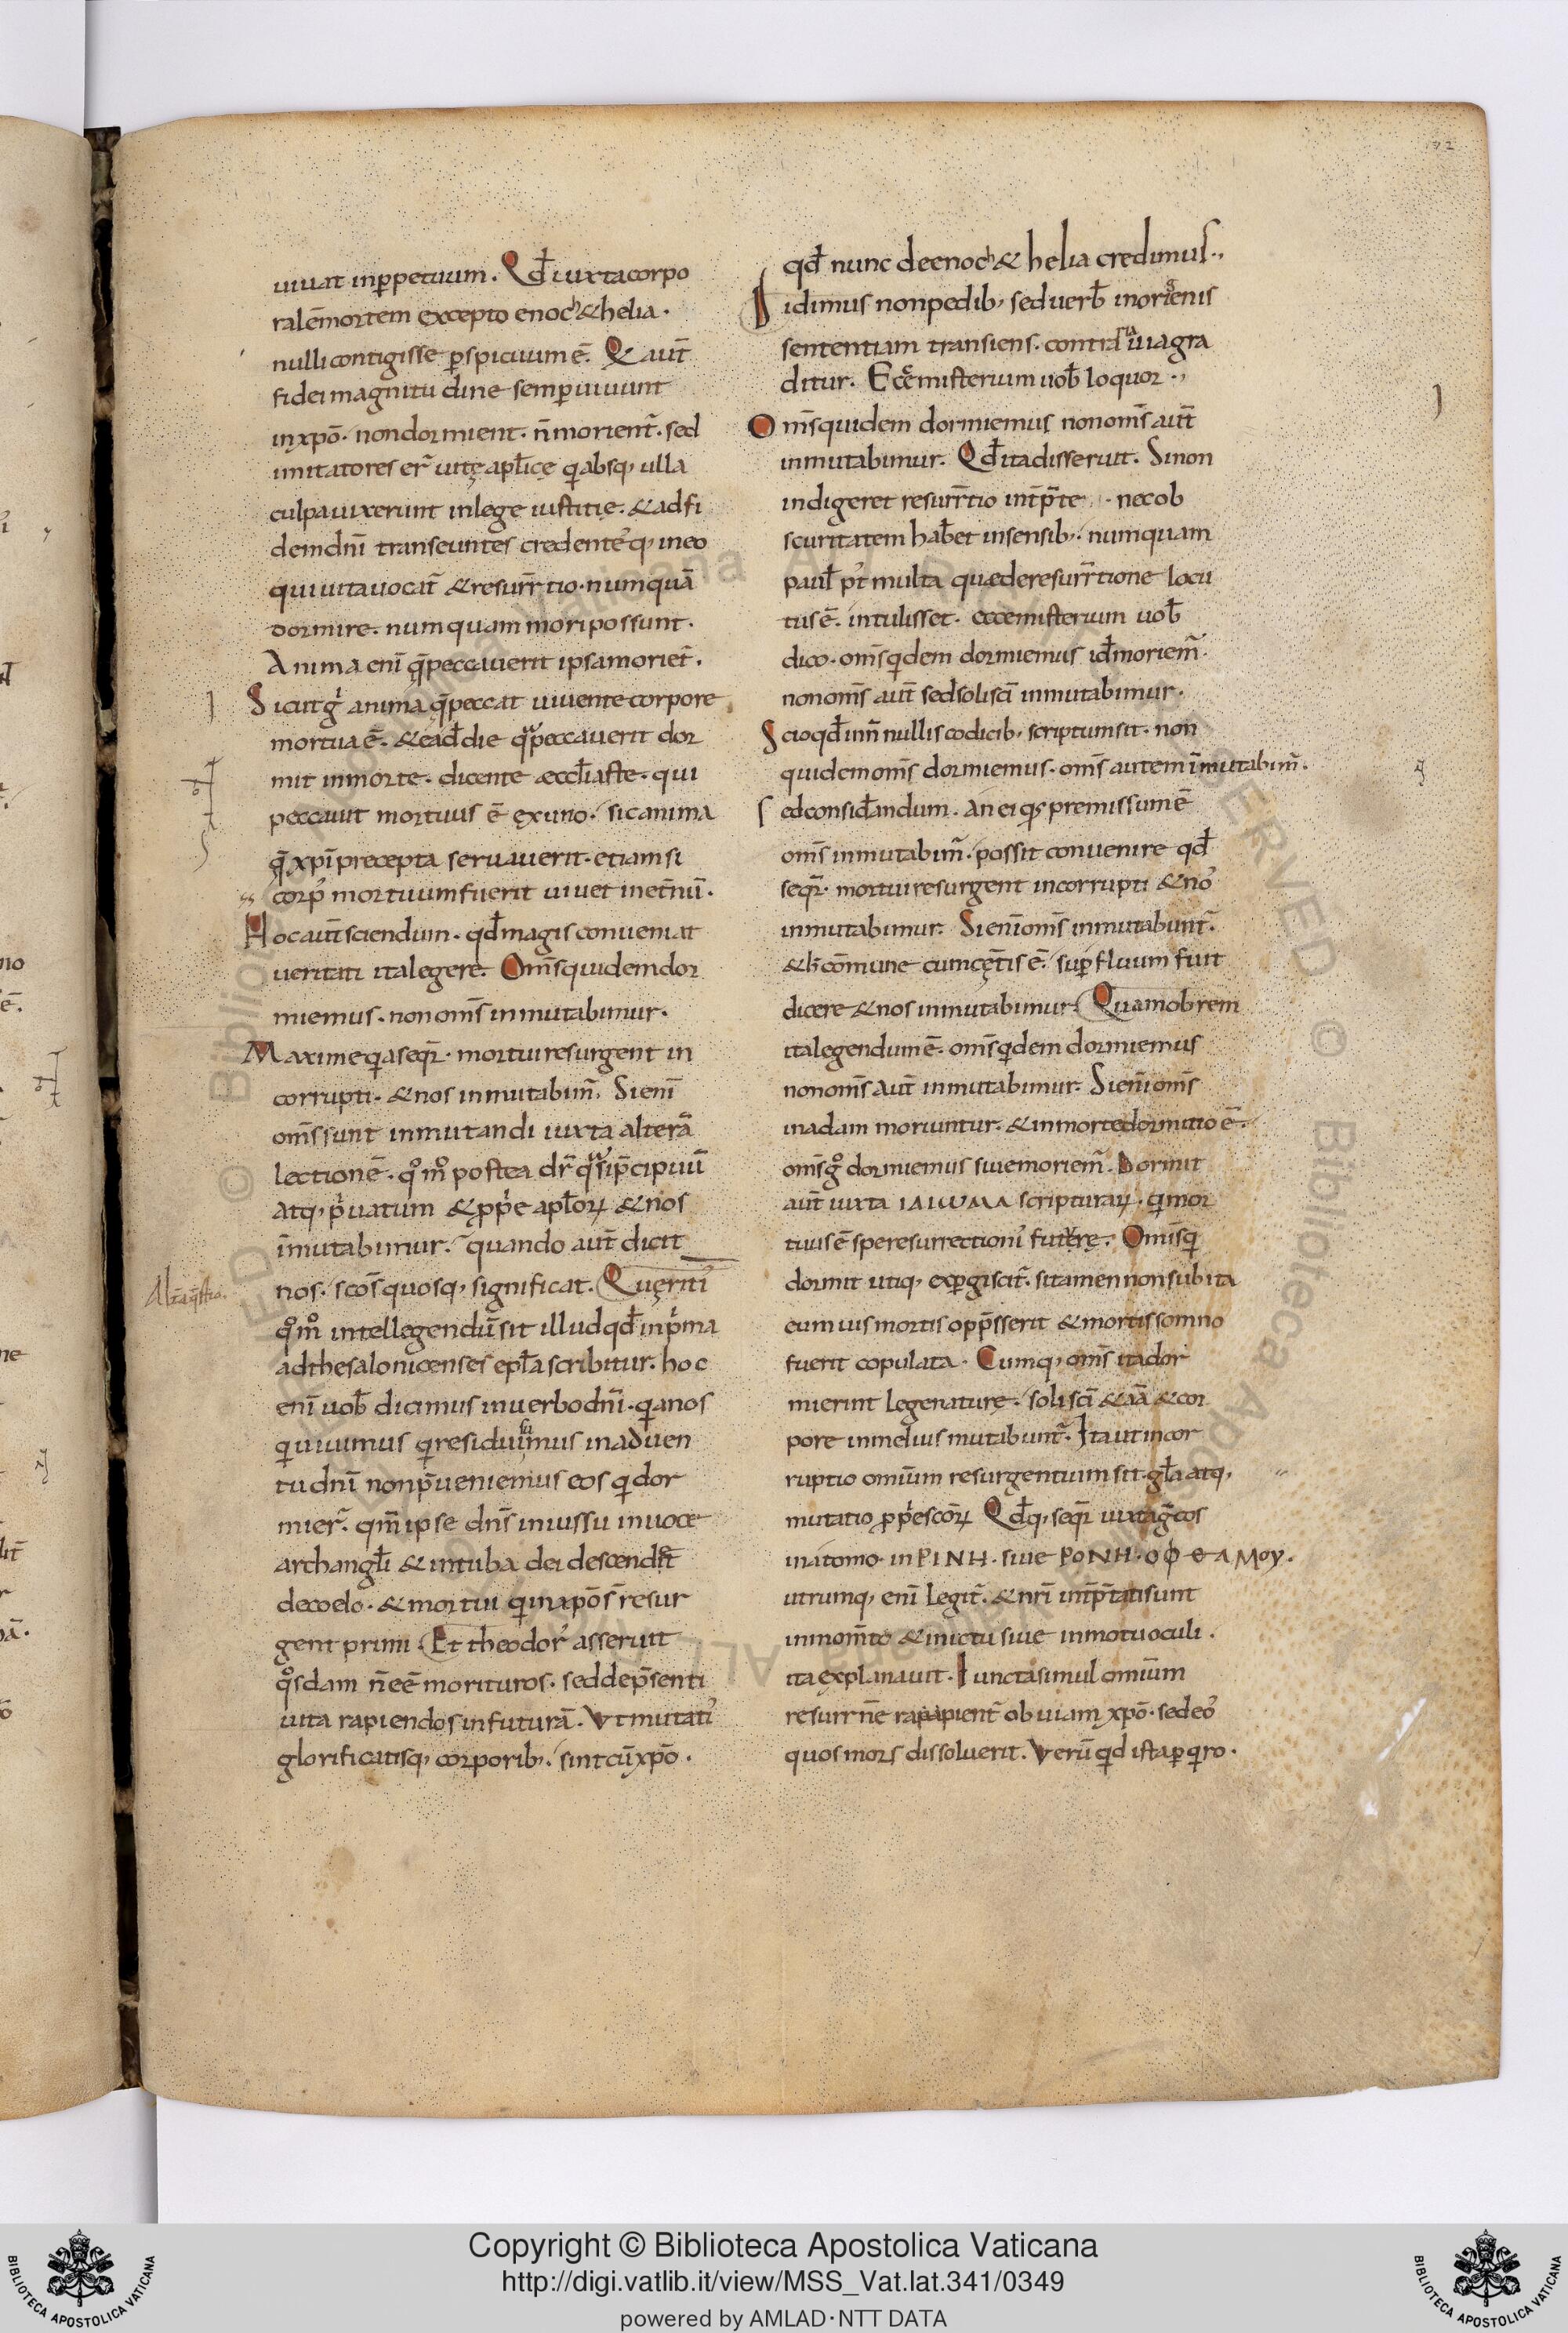 uiuat inp̱petuum. Qđ iuxta corpo
ralē mortem excepto enoch & helia.
nulli contigisse p̱spicuum ē. Q aut̄
fidei magnitudine semp̱ uiuunt
in xp̄o. non dormient. n̄ morient̄. sed
imitatores er̄ uitę apł̄icę q absq; ulla
culpa uixerunt in lege iustitie. & ad fi
dem dn̄i transeuntes credentesq; in eo
qui uita uocat̄ & resurr̄tio. numquā
dormire. numquam mori possunt.
Anima enī q̄ peccauerit ipsa moriet̄.
Sicut g̊ anima q̄ peccat uiuente corpore
mortua ē. & eađ die qua peccauerit dor
mit in morte. dicente æccł̄iaste. qui
peccauit mortuus ē ex uno. sic anima
q̄ xp̄i precepta seruauerit. etiam si
corp' mortuum fuerit uiuet in et̄nū.
Hoc aut̄ sciendum. qđ magis conueniat
ueritati ita legere. Om̄s quidem dor
miemus. non om̄s inmutabimur.
Maxime q a seqr̄. mortui resurgent in
corrupti. & nos inmutabim̄. Si enī
om̄s sunt inmutandi iuxta alterā
lectionē. qo mo postea dr̄ quasi p̄cipuū
atq; p'uatum & p̱p'e apł̄oꝝ & nos
īmutabimur. quando aut̄ dicit
nos. sc̄os quosq; significat. Quęrit'
qo mo intellegendū sit illud qđ in p'ma
ad thesalonicenses epł̄a scribitur. hoc
enī uob̄ dicimus in uerbo dn̄i. q a nos
q uiuimus q residui sumus in aduen
tu dn̄i non p̄ueniemus eos q dor
mier̄. qm̄ ipse dn̄s in iussu in uoce
archangł̄i & in tuba dei descendet
de coelo. & mortui q in xp̄o s̄ resur
gent primi. Et theodor' asseruit
qosdam n̄ eē morituros. sed de p̄senti
uita rapiendos in futurā. Vt mutati'
glorificatisq; corporib; sint cū xp̄o.
Alt̄a q̄stio.
qđ nunc de enoch & helia credimus.,
Didimus non pedib; sed uerb̄ in origenis
sententiam transiens. contraria uia gra
ditur. Ecce misterium uob̄ loquor.,
Om̄s quidem dormiemus non om̄s aut̄
inmutabimur. Qđ ita disseruit. Si non
indigeret resurr̄tio int̄p̄te. nec ob
scuritatem hab̄et in sensib; numquam
paul̄ p't multa quæ de resurr̄tione locu
tus ē. intulisset. ecce misterium uob̄
dico. om̄s qdem dormiemus iđ moriem̄.
non om̄s aut̄ sed soli sc̄i inmutabimur.
Scio qđ in n̄nullis codicib; scriptum sit. non
quidem om̄s dormiemus. om̄s autem īmutabim̄.
sed considandum. an ei q p̄missum ē
om̄s inmutabim̄. possit conuenire qđ
seqr̄. mortui resurgent incorrupti & no'
inmutabimur. Si enī om̄s inmutabunt̄.
& h̄ cōmune cum cęt̄is ē. sup̱fluum fuit
dicere & nos inmutabimur. Quamobrem
ita legendum ē. om̄s qdem dormiemus
non om̄s aut̄ inmutabimur. Si enī om̄s
in adam moriuntur. & in morte dormitio ē.
om̄s go dormiemus siue moriem̄. Dormit
aut̄ iuxta ΙΔΙѠΜΑ scripturaꝝ. q mor
tuus ē spe resurrectioni' futurę. Om̄isq
dormit utiq; exp̱giscit̄. si tamen non subita
eum uis mortis opp̄sserit & mortis somno
fuerit copulata. Cumq; om̄s ita dor
mierint lege naturę. soli sc̄i & aā & cor
pore in melius mutabunt̄. Ita ut incor
ruptio omīum resurgentium sit. gł̄a atq;
mutatio p̱p'e sc̄oꝝ. Qđq; seqr̄ iuxta g̅cos
in atomo. in ΡΙΝΗ. siue ΡΟΝΗ. ΟΦΘΑΛΜΟΥ.
utrumq; enī legit̄. & nr̄i int̄p̄tati sunt
in mom̄to & in ictu siue in motu oculi.
ita explanauit. Iuncta simul omīum
resurr̄ne rapient̄ obuiam xp̄o. sed eo'
quos mors dissoluerit. Verū qd ista p̱qro.
Copyright © Biblioteca Apostolica Vaticana
http://digi.vatlib.it/view/MSS_Vat.lat.341/0349
powered by AMLAD · NTT DATA
BIBLIOTECA APOSTOLICA VATICANA
BIBLIOTECA APOSTOLICA VATICANA